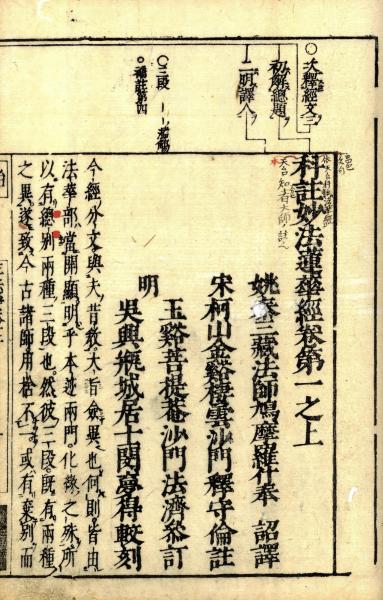 ○次釋經文三
初解總題
二明譯人
○三段
○補註第四
科註妙法蓮華經卷第一之上
姚秦三藏法師鳩摩羅什奉 詔譯
宋柯山金谿棲雲沙門釋守倫註
玉谿菩提菴沙門法濟參訂
明
吳興甀城居士閔夢得較刻
今經外文與夫昔教大旨僉異也何則皆由
法華部當開顯明乎本迹兩門化緣之殊所
以有總別兩種三段也然彼三段既有兩種
之異遂致今古諸師用捨不一或有棄別而